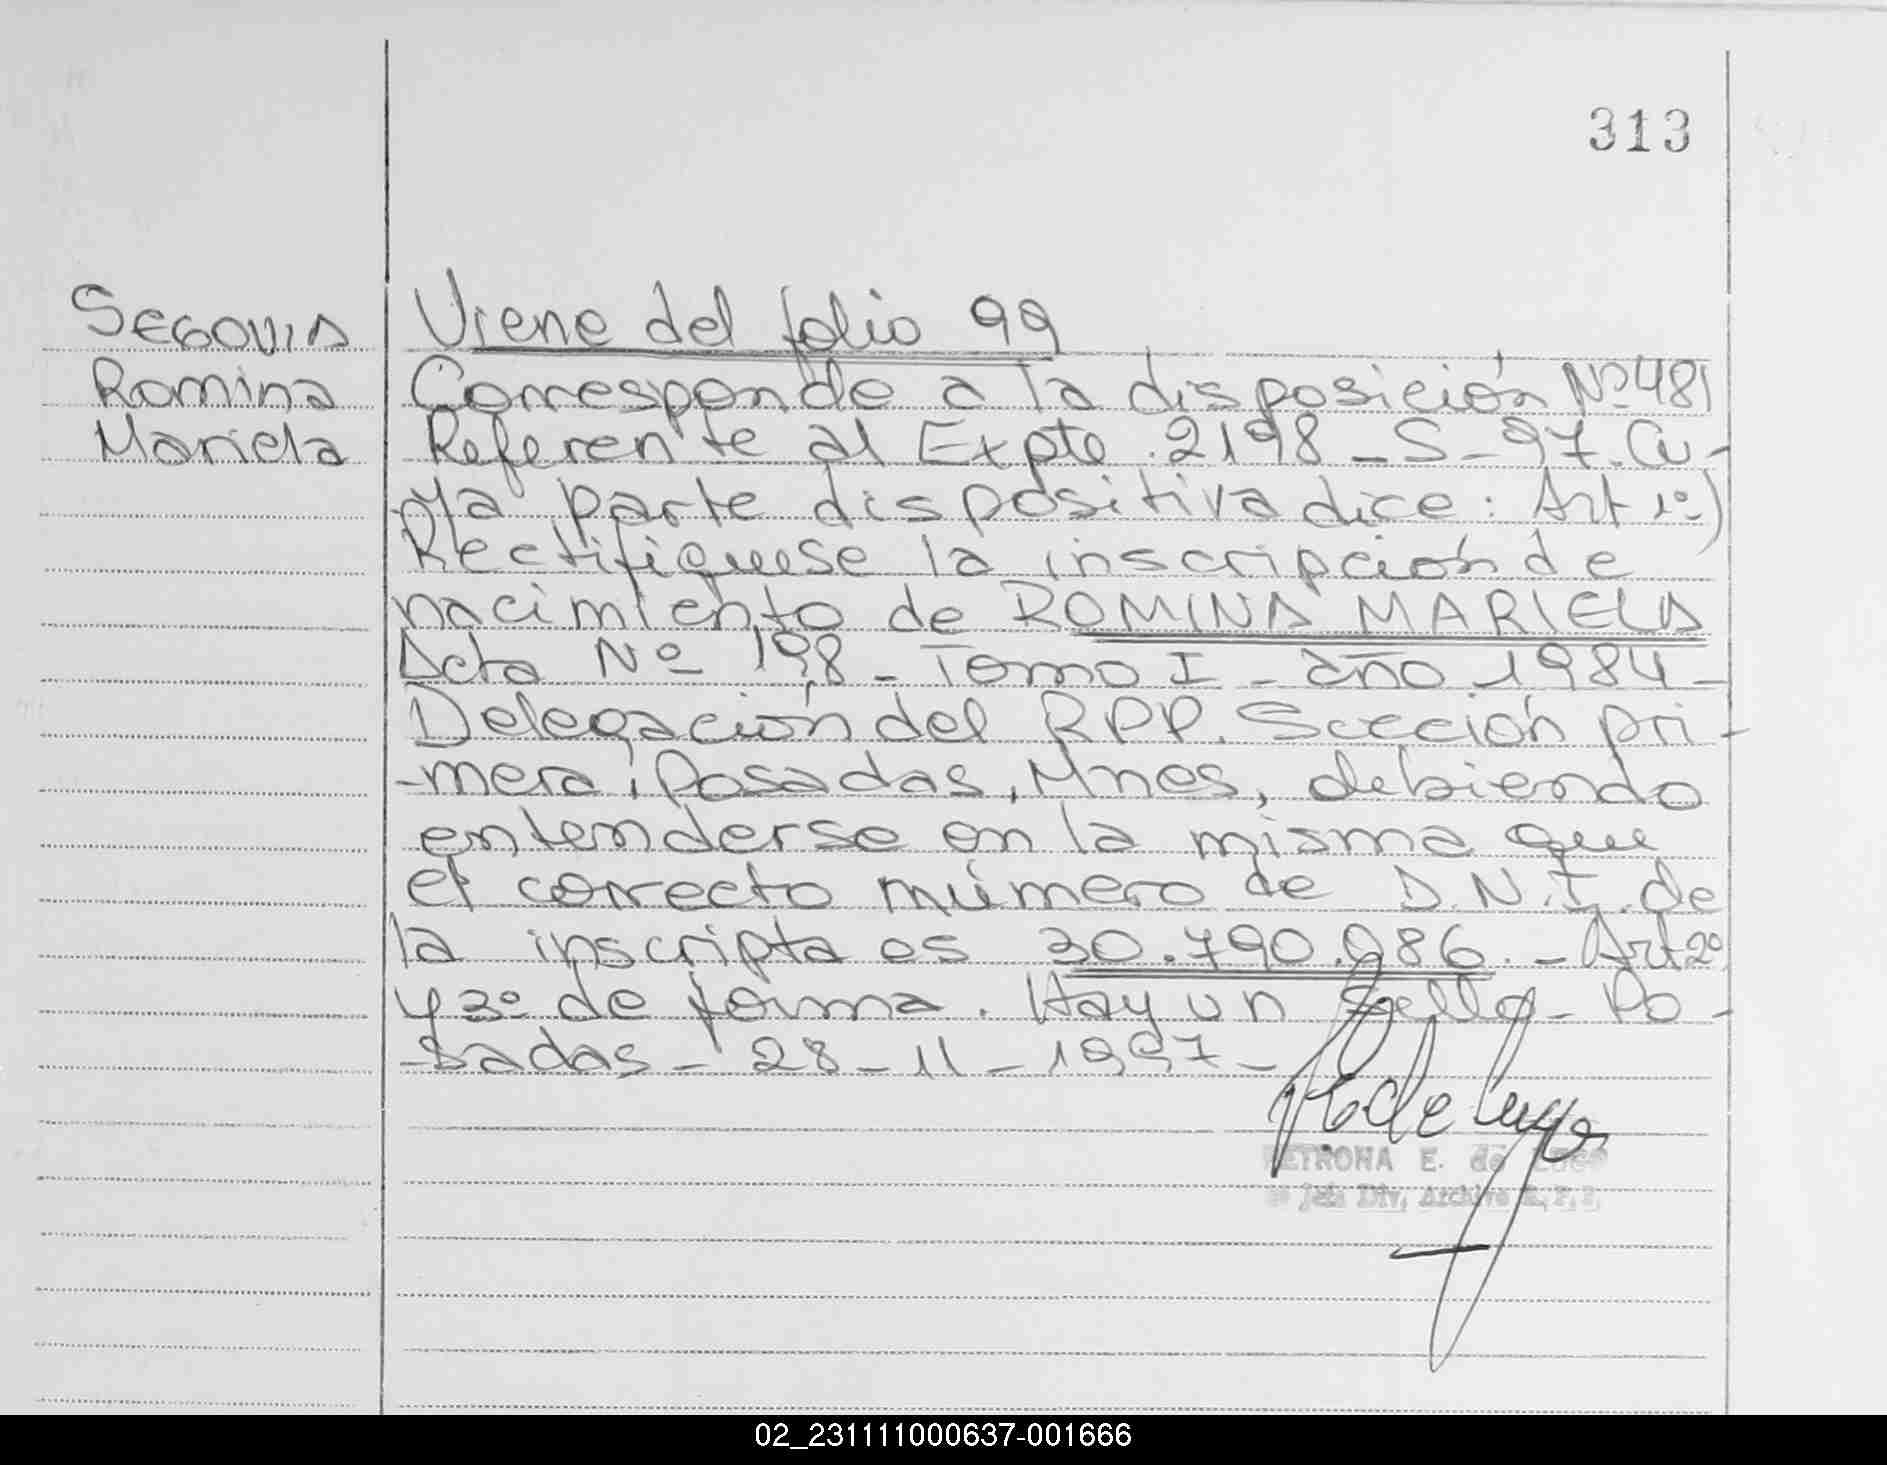 313
SEGOVIA
Romina
Mariela
Viene del folio 99
Corresponde a la disposición Nº 481
Referente al Expte. 2198_S_97. Cu-
-ya parte dispositiva dice: Art 1º)
Rectifiquese la inscripción de
nacimiento de ROMINA MARIELA
Acta Nº 198 - Tomo I - año 1984 -
Delegación del RPP. Sección pri-
-mera, Posadas, Mnes, debiendo
entenderse en la misma que
el correcto número de D.N.I. de
la inscripta es 30.790.086. - Art 2º
y 3º de forma. Hay un sello - Po-
-sadas - 28 - 11 - 1997 -
PETRONA E. de LUGO
Jefa Div. Archivo R.P.P.
02_231111000637-001666